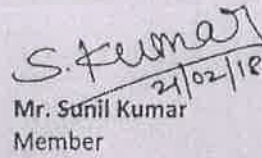 S. Kumar
21/02/18
Mr. Sunil Kumar
Member